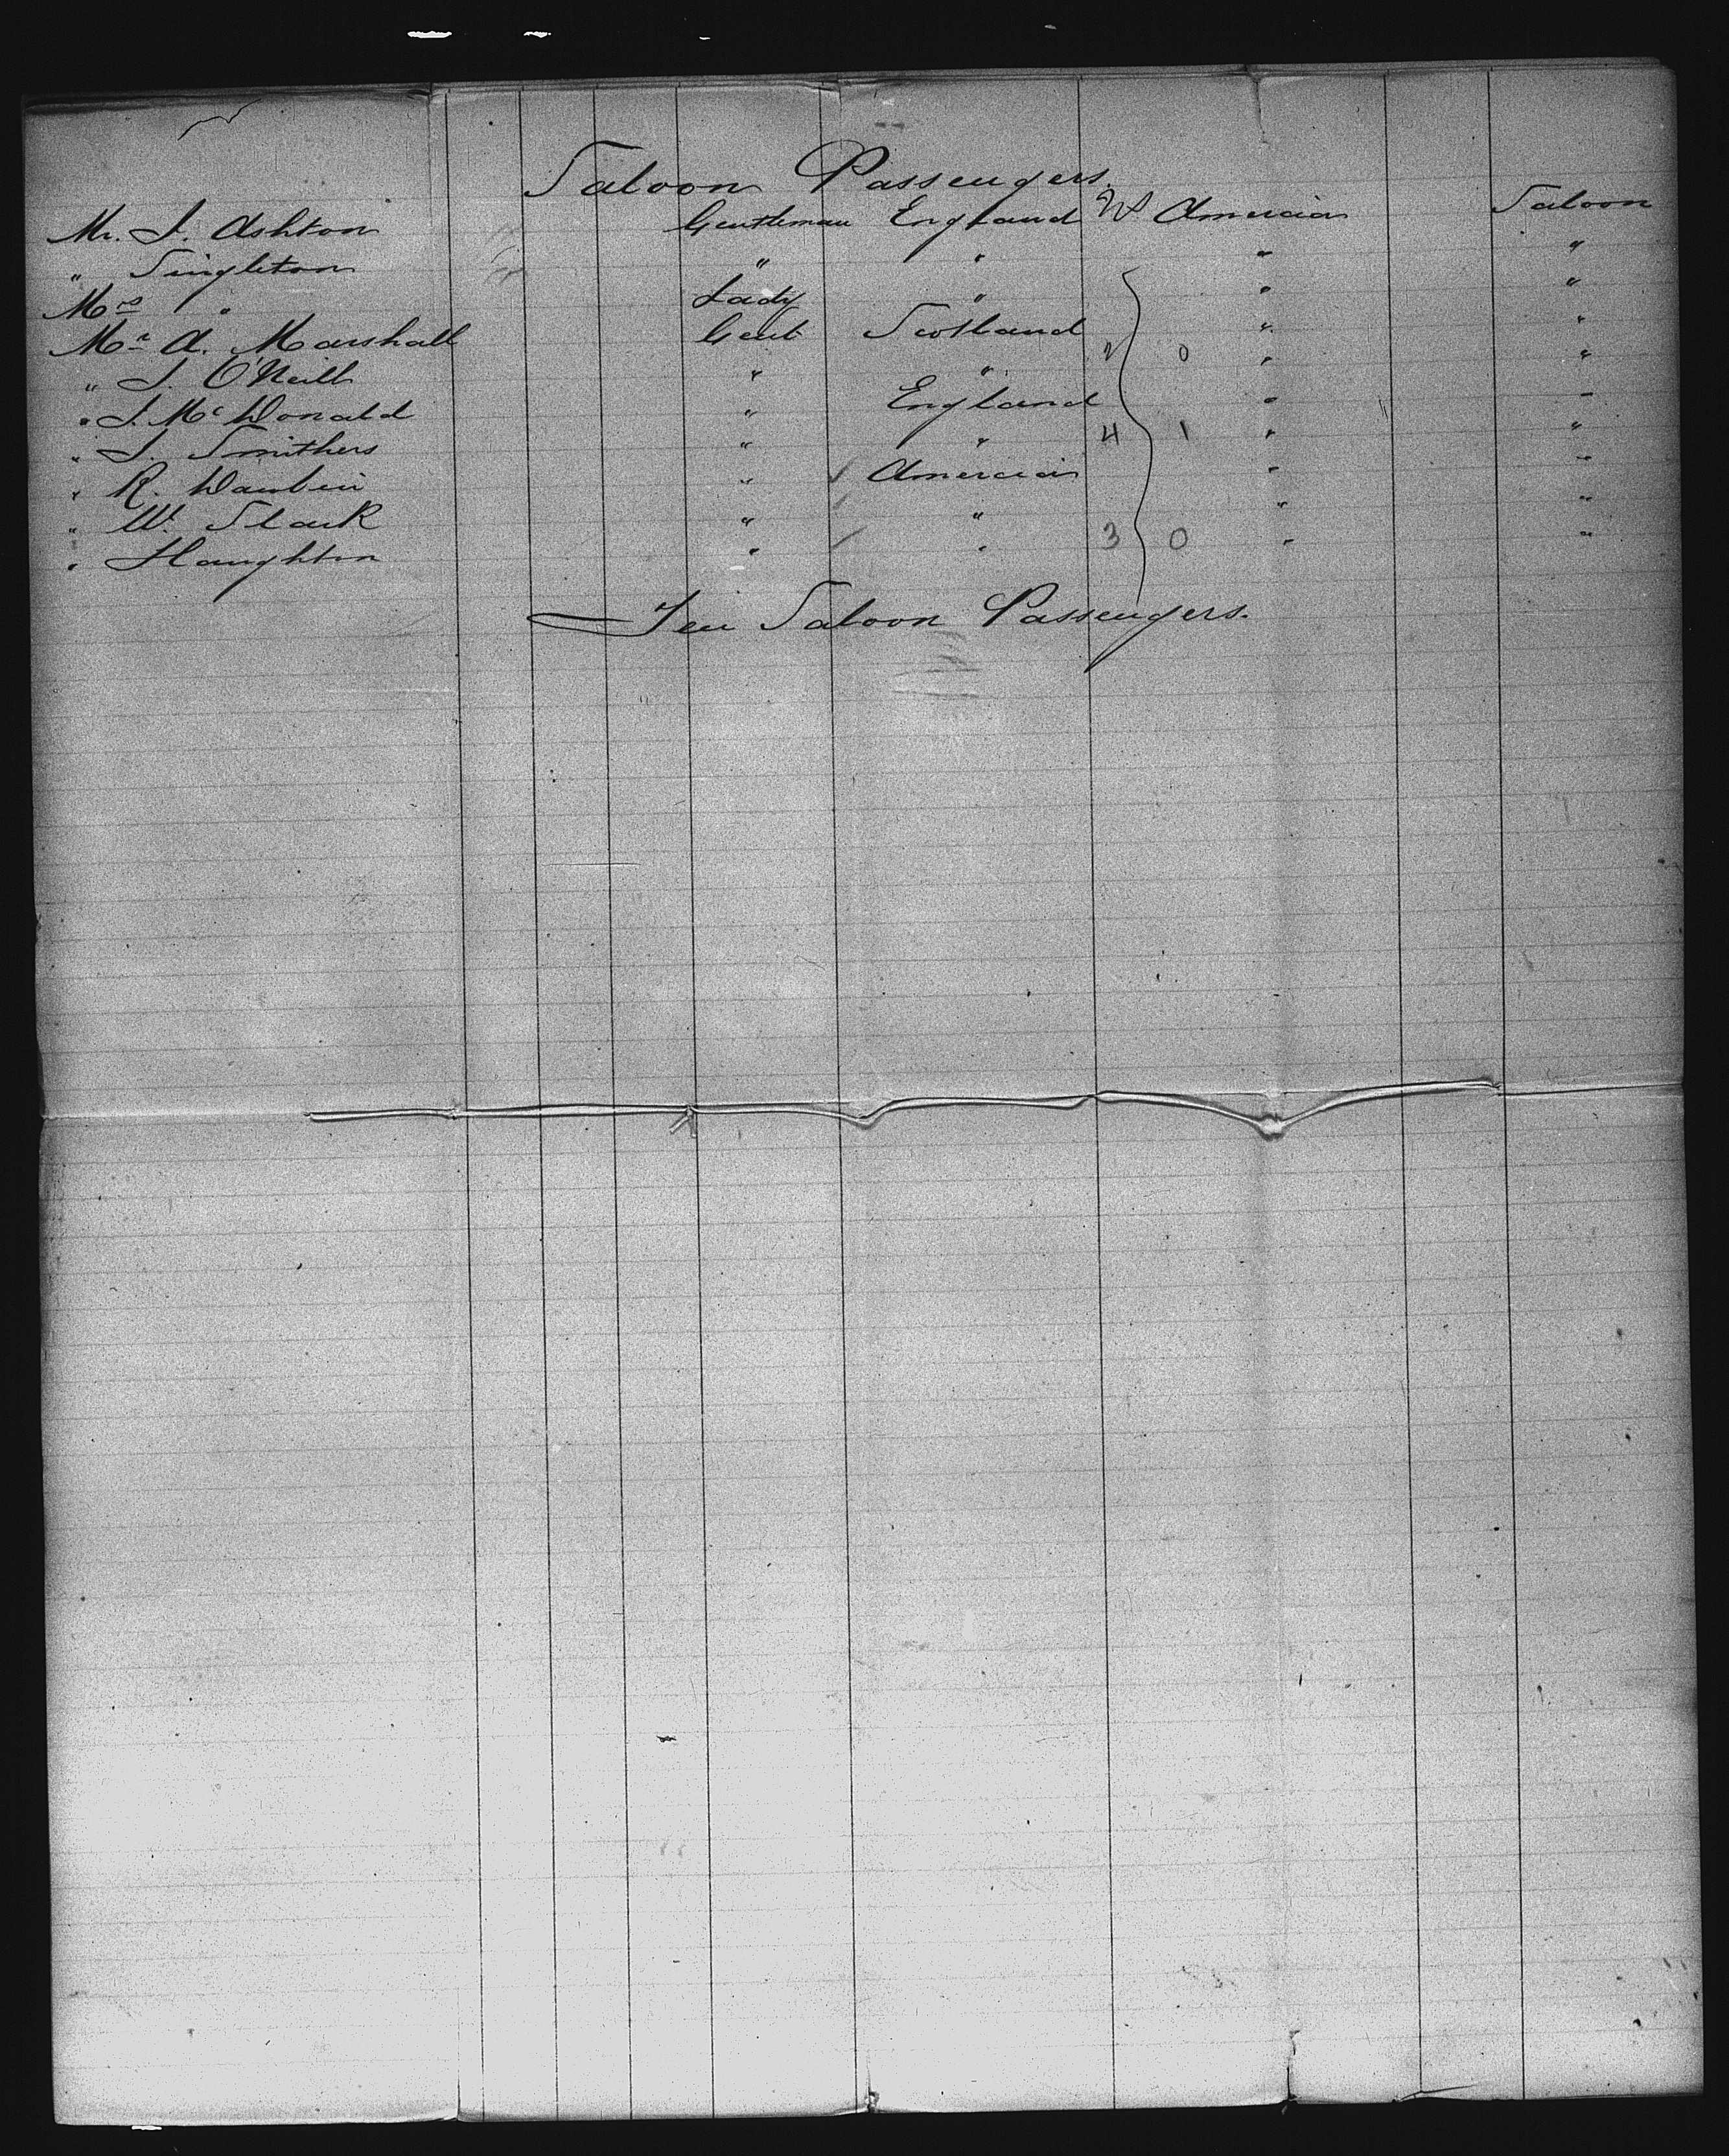 Saloon Passengers.
Mr. J. Ashton Gentleman England America Saloon
" Singleton " " " "
Mrs " Lady " " "
Mr A. Marshall Gent Scotland " "
" J. O'Neill " " 2 0 " "
" J. McDonald " England " "
" J. Smithers " " 4 1 " "
" R. " America " "
" W. Stark " " " "
" Haughton " " 3 0 " "
Ten Saloon Passengers.